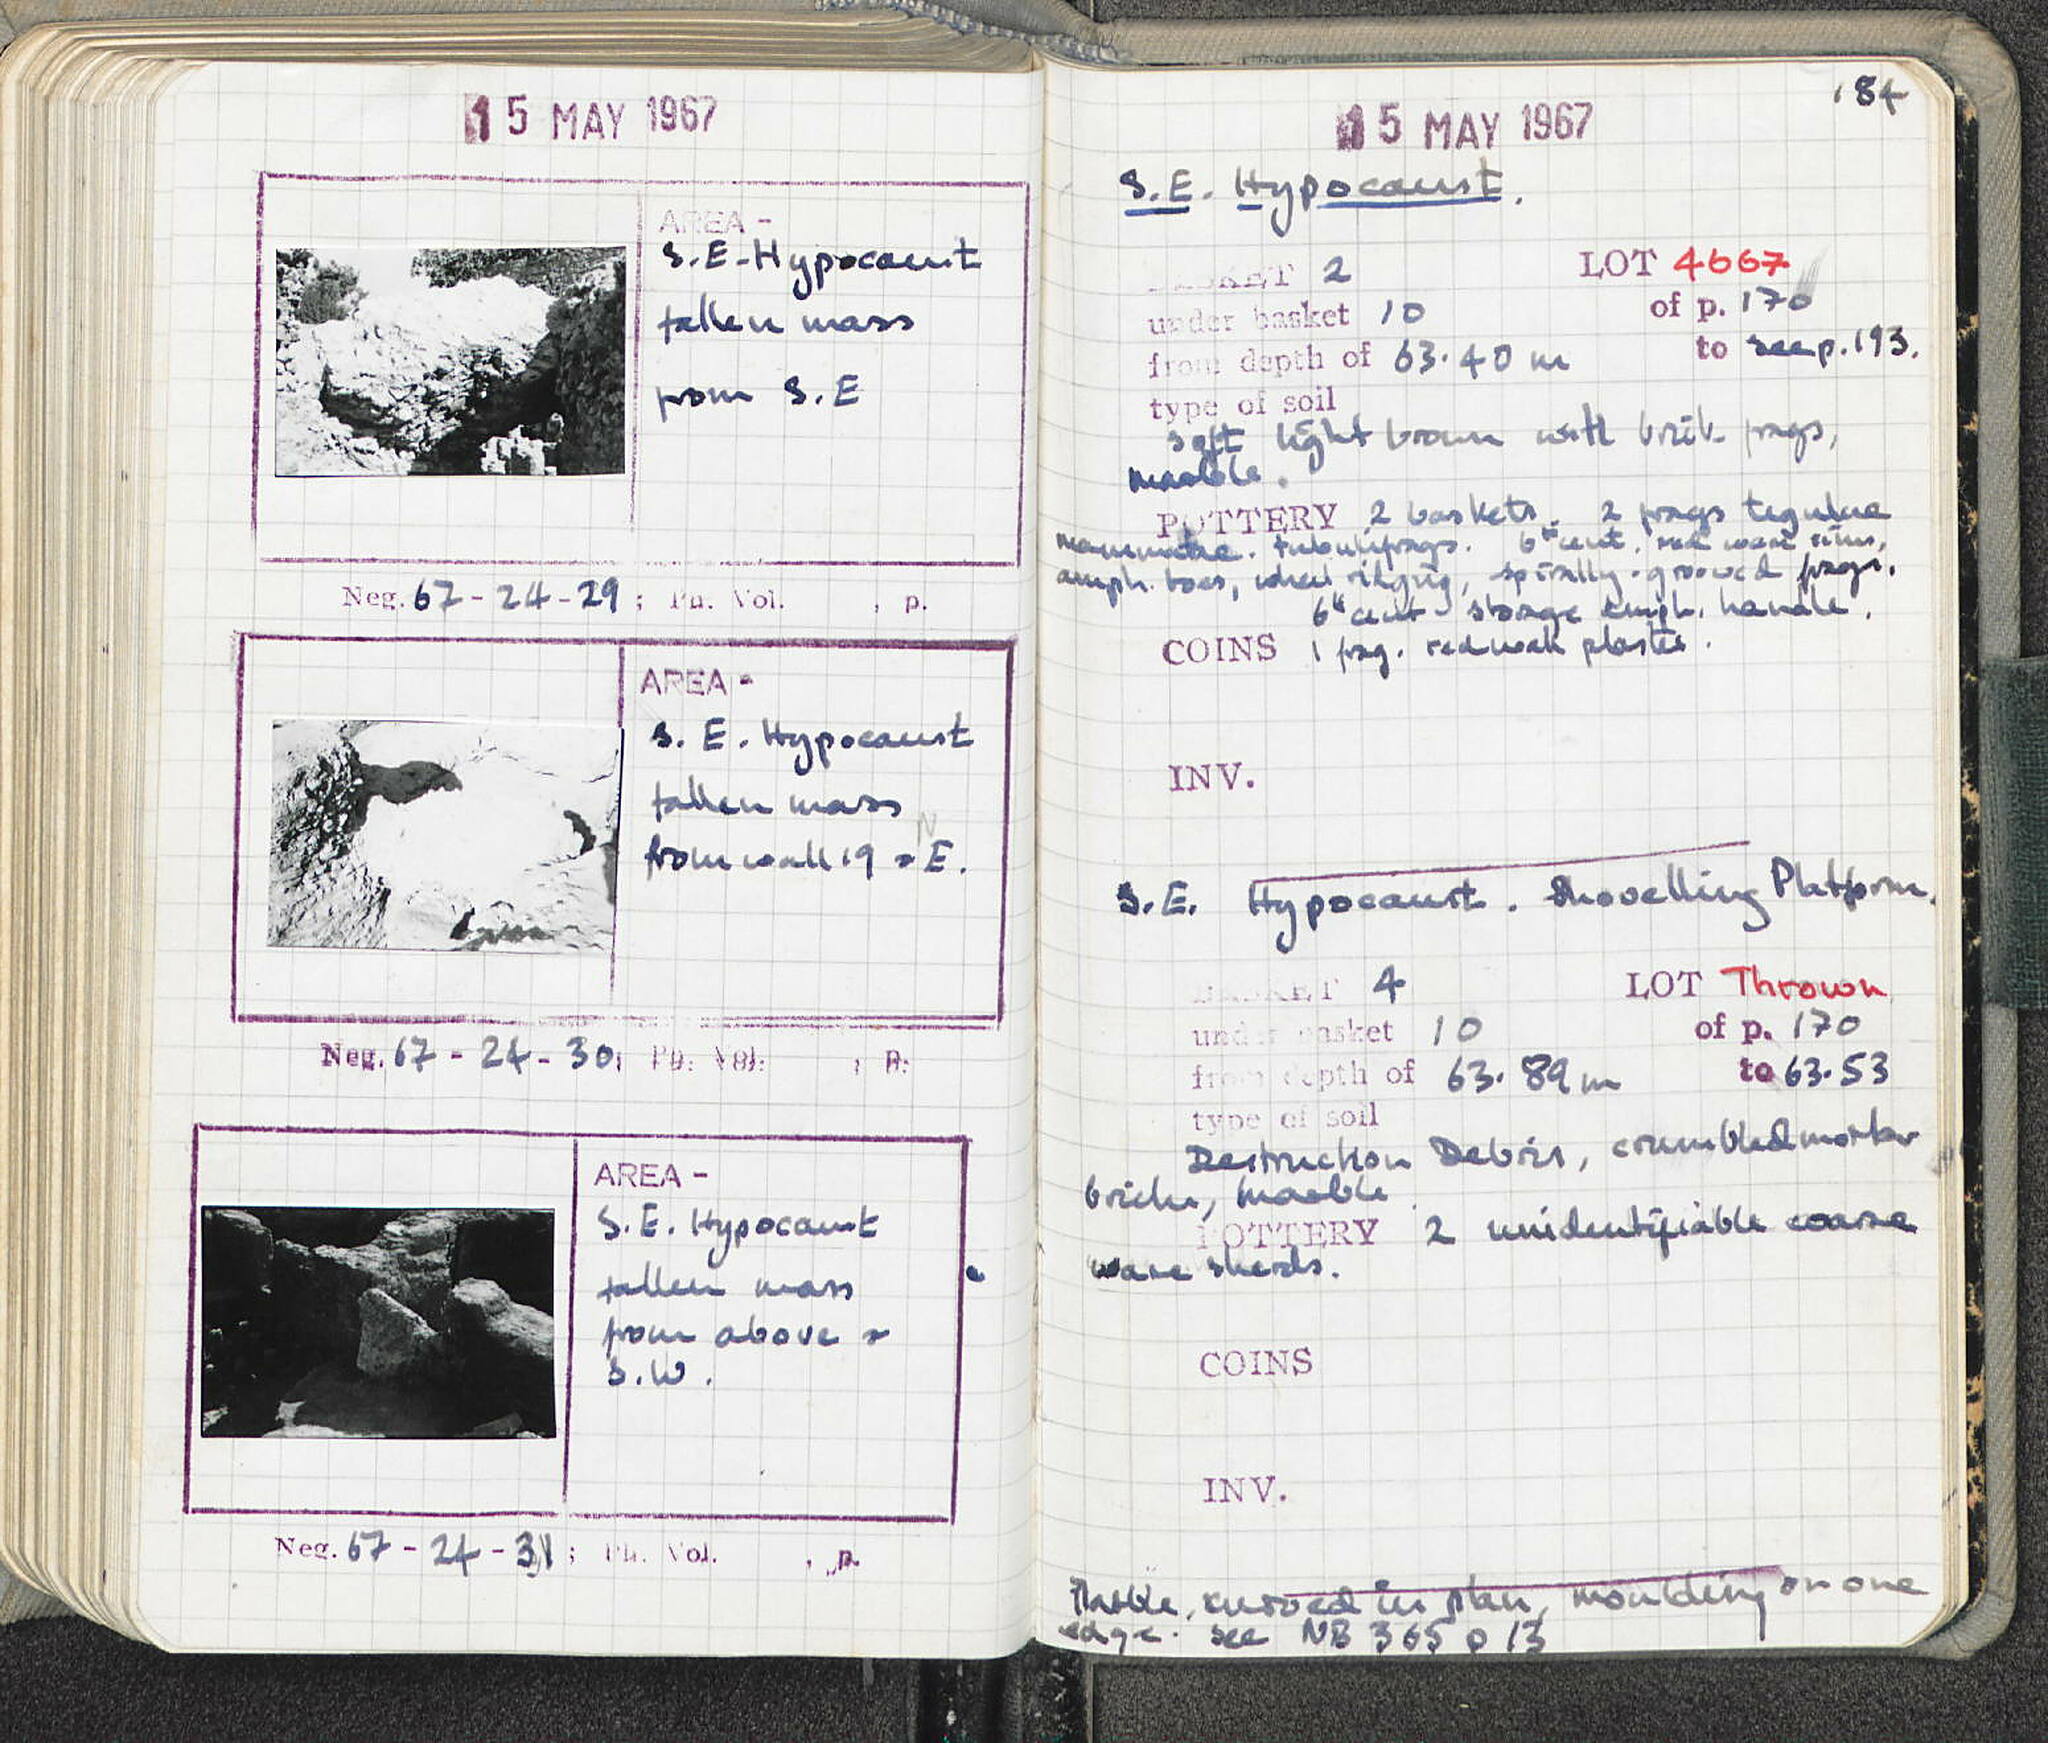 15 MAY 1967
AREA -
S.E. Hypocaust
fallen mass
from S.E
Neg. 67-24-29; Ph. Vol. , p.
AREA -
S.E. Hypocaust
fallen mass
N
from wall 19 E.
Neg. 67-24-30; Ph. Vol. , p.
AREA -
S.E. Hypocaust
fallen mass
from above
S.W.
Neg. 67-24-31; Ph. Vol. , p.
184
15 MAY 1967
S.E. Hypocaust.
BASKET 2 LOT 4667
under basket 10 of p. 170
from depth of 63.40 m to see p. 193.
type of soil
soft light brown with brick frags,
marble.
POTTERY 2 baskets. 2 frags tegulae
mammatae. tubuli frags. 6th cent. red ware rims,
amph. toes, wheel ridging, spirally-grooved frags.
6th cent storage amph. handle.
COINS 1 frag. red wall plaster.
INV.
S.E. Hypocaust. Shovelling Platform.
BASKET 4 LOT Thrown
under basket 10 of p. 170
from depth of 63.89 m to 63.53
type of soil
Destruction Debris, crumbled mortar
bricks, marble
POTTERY 2 unidentifiable coarse
ware sherds.
COINS
INV.
Marble, curved in plan, moulding on one
edge. see NB 365 p 13